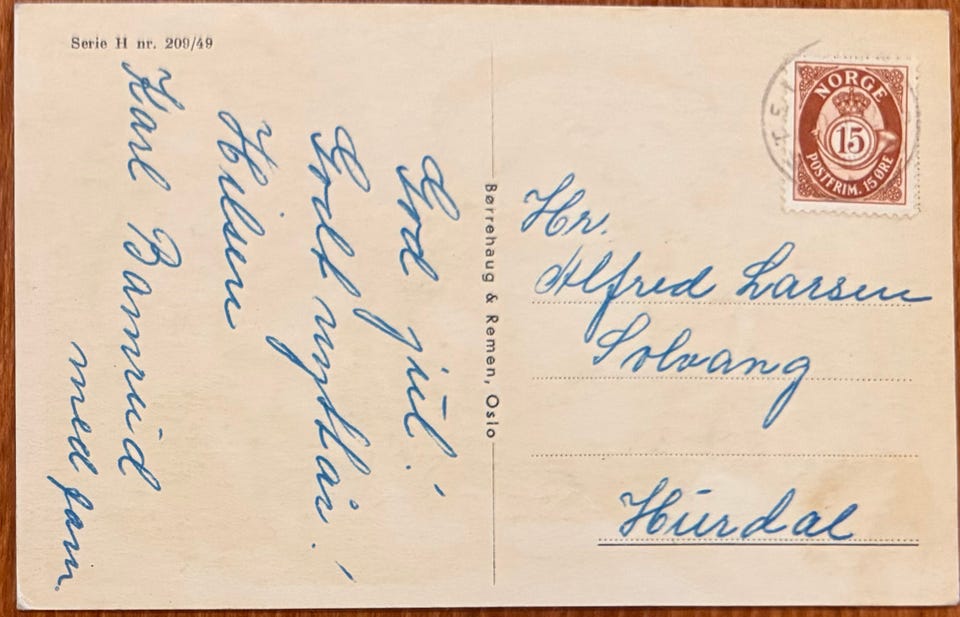 Serie H nr. 209/49
God jul!
Godt nyttår!
Hilsen
Karl Bamrud
med fam.
Børrehaug & Remen, Oslo
NORGE
15
POSTFRIM. 15 ØRE
Hr.
Alfred Larsen
Solvang
Hurdal